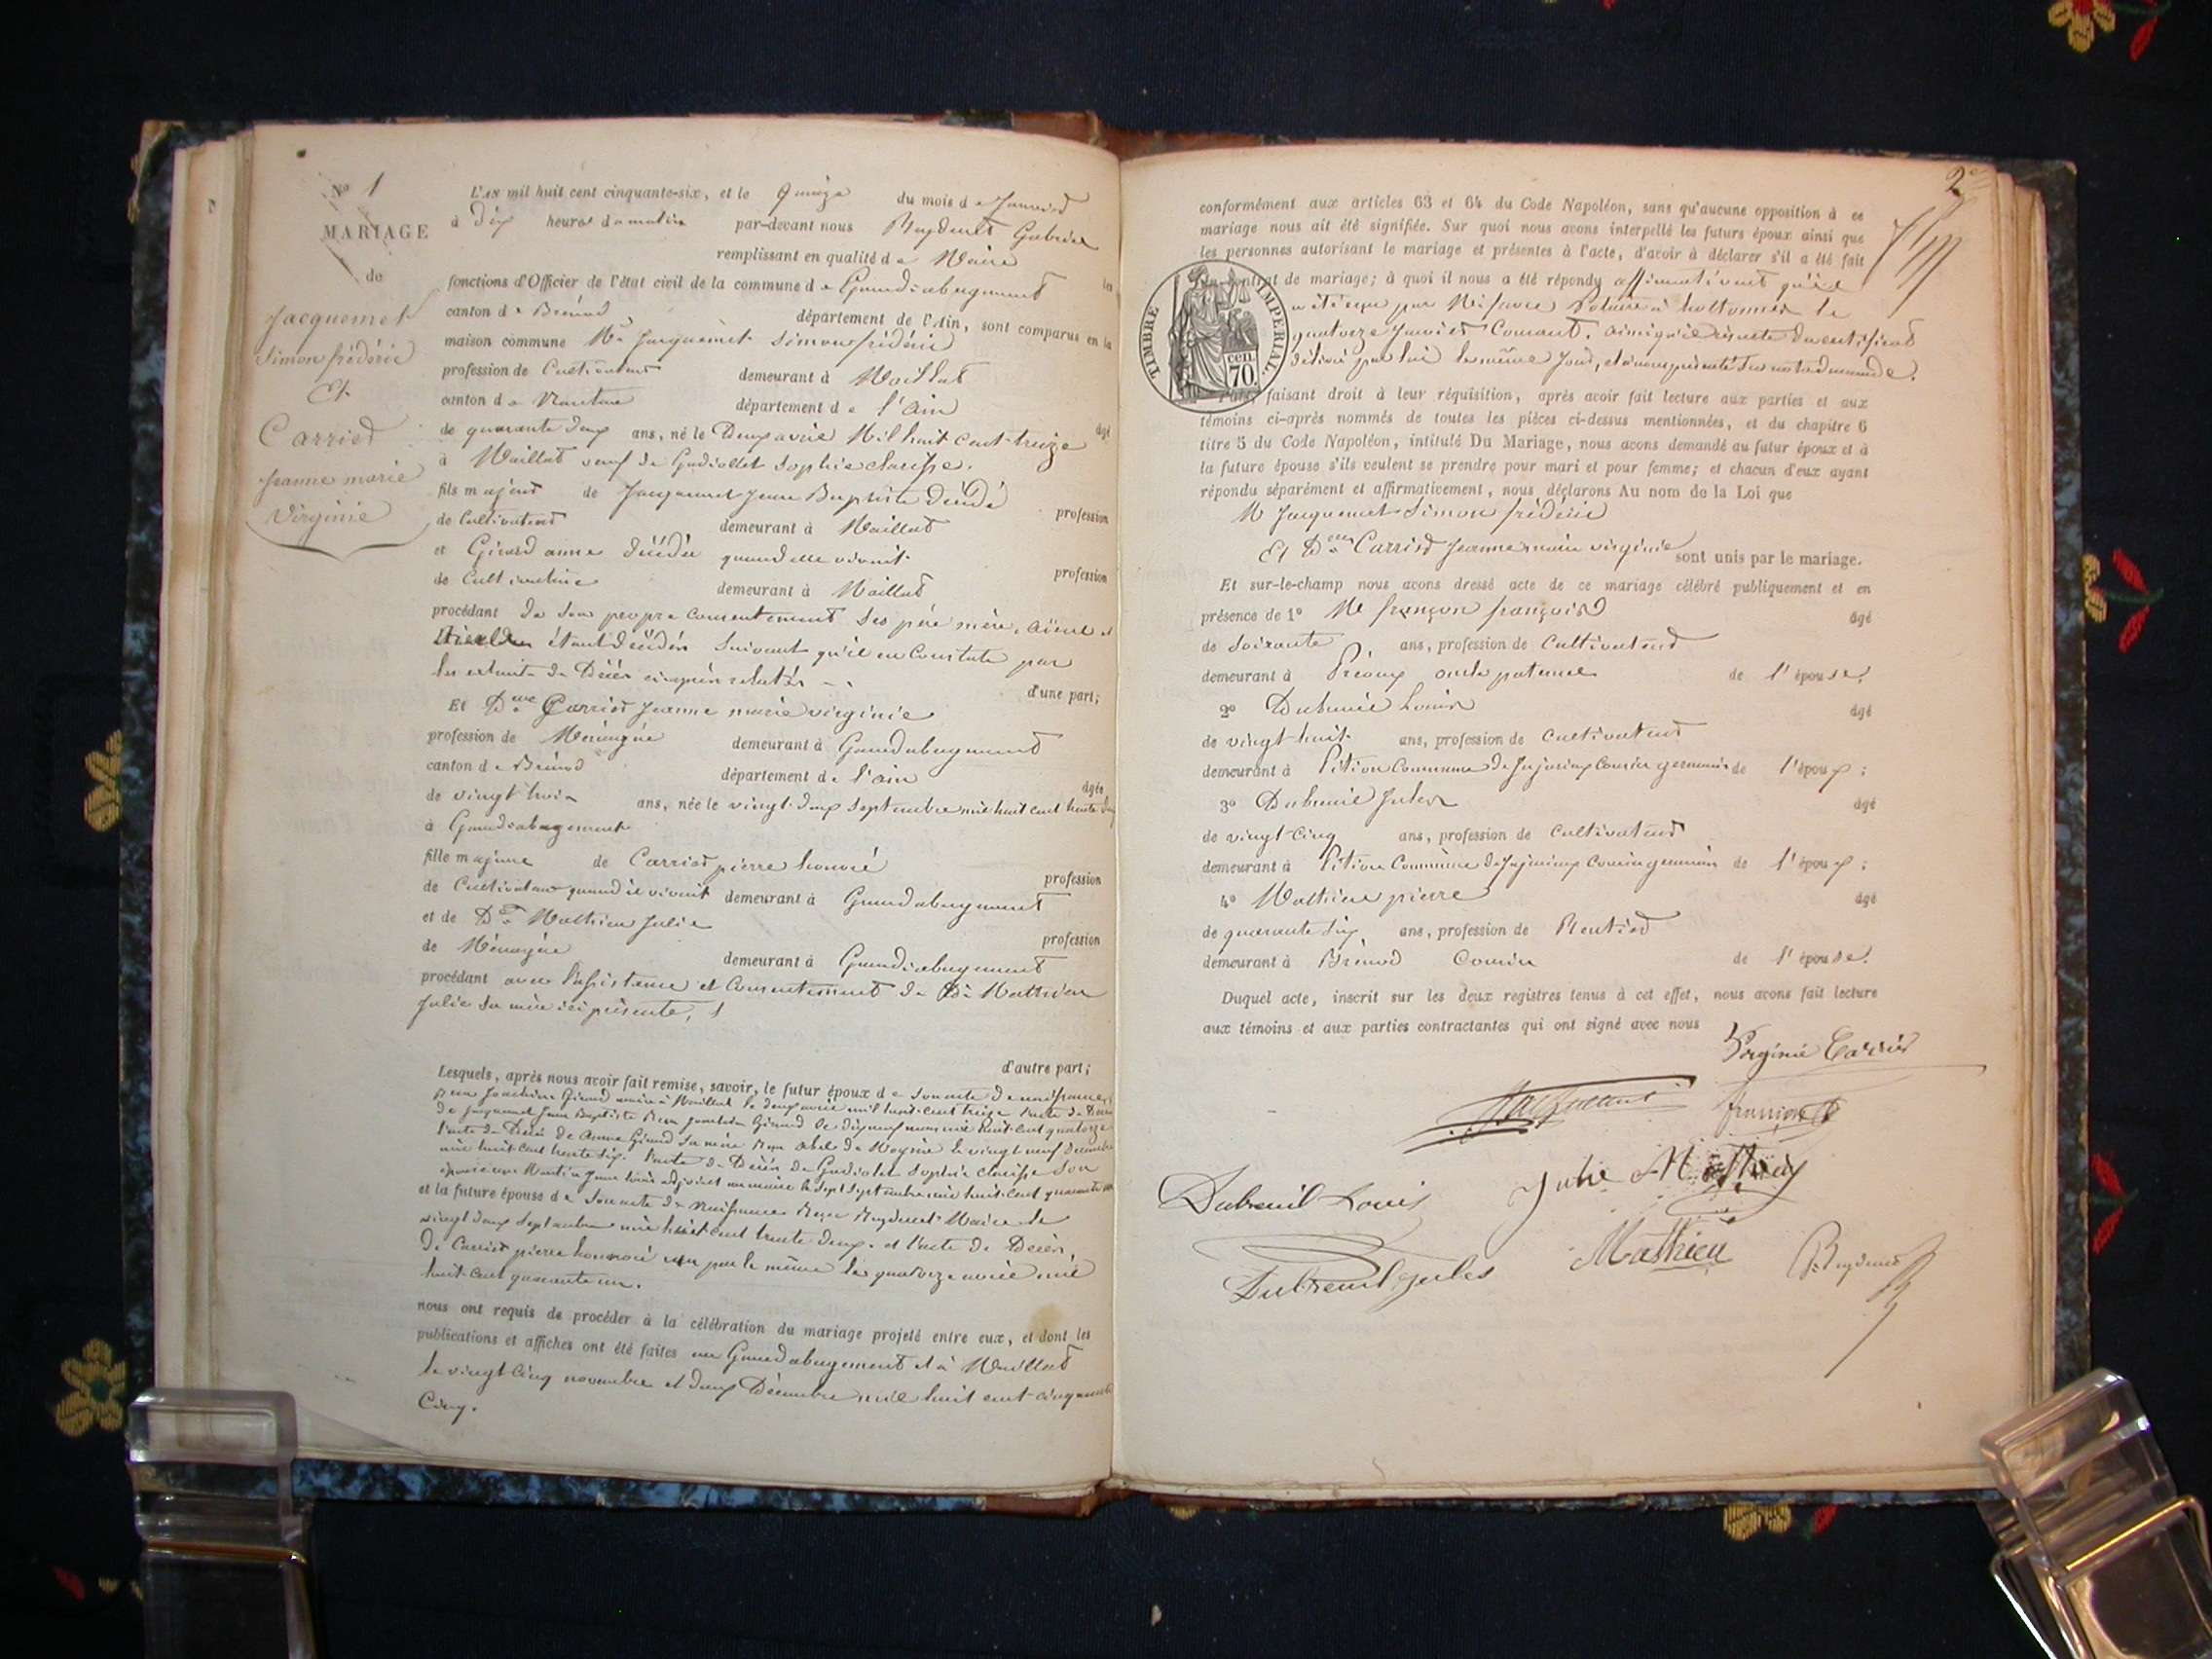 N° 1
MARIAGE
de
Jacquemet
Simon frédéric
Et
Carrier
Jeanne marie
Virginie
L'AN mil huit cent cinquante-six, et le Quinze du mois de Janvier
à Dix heures du matin par-devant nous Reydellet Gabriel
remplissant en qualité de Maire les
fonctions d'Officier de l'état civil de la commune de Grand-abergement
canton de Brénod département de l'Ain, sont comparus en la
maison commune Mr Jacquemet Simon frédéric
profession de Cultivateur demeurant à Maillat
canton de Nantua département de l'ain âgé
de quarante deux ans, né le Deux avril Mil huit cent treize
à Maillat veuf de Gudiollet Sophie clarisse.
fils majeur de Jacquemet Jean Baptiste décédé profession
de Cultivateur demeurant à Maillat
et Girard anne décédée quand elle vivait profession
de Cultivatrice demeurant à Maillat
procédant de son propre consentement ses père mère, aïeul et
étant décédés suivant qu'il en Constate par
les extraits de Décès ci après relatés
d'une part;
Et Dlle Carrier Jeanne marie virginie
profession de Ménagère demeurant à Grand abergement
canton de Brénod département de l'ain âgée
de vingt trois ans, née le vingt deux septembre mil huit cent trente deux
à Grand-abergement
fille majeure de Carrier pierre honoré profession
de Cultivateur quand il vivait demeurant à Grand abergement
et de De Mathieu Julie profession
de Ménagère demeurant à Grand-abergement
procédant avec l'assistance et Consentement de De Mathieu
Julie sa mère ici présente,
d'autre part;
Lesquels, après nous avoir fait remise, savoir, le futur époux de Son acte de naissance,
Reçu Joachim Girard maire à Maillat le deux avril mil huit cent treize l'acte de Décès
de Jacquemet Jean Baptiste Reçu Joachim Girard le dix neuf mars mil huit cent quatorze
l'acte de Décès de Anne Girard sa mère Reçu le vingt neuf décembre
mil huit cent trente six. l'acte de Décès de Gudiollet Sophie Clarisse son
épouse adjoint au maire le sept septembre mil huit cent quarante
et la future épouse de Son acte de Naissance Reçu Reydellet Maire le
vingt deux septembre mil huit cent trente deux. et l'acte de Décès,
de Carrier pierre honnoré reçu par le même le quatorze avril mil
huit cent quarante un.
nous ont requis de procéder à la célébration du mariage projeté entre eux, et dont les
publications et affiches ont été faites au Grand abergement et à Maillat
le vingt Cinq novembre et deux Décembre mil huit cent cinquante
Cinq.
2e
conformément aux articles 63 et 64 du Code Napoléon, sans qu'aucune opposition à ce
mariage nous ait été signifiée. Sur quoi nous avons interpellé les futurs époux ainsi que
les personnes autorisant le mariage et présentes à l'acte, d'avoir à déclarer s'il a été fait
un contrat de mariage; à quoi il nous a été répondu affirmativement qu'il
a été reçu par Me Notaire à hottonnes le
quatorze Janvier Courant, ainsi qu'il résulte du certificat
délivré par lui le même Jour, et à nous présenté sur notre demande.
TIMBRE IMPERIAL.
cen.
70.
Puis, faisant droit à leur réquisition, après avoir fait lecture aux parties et aux
témoins ci-après nommés de toutes les pièces ci-dessus mentionnées, et du chapitre 6
titre 5 du Code Napoléon, intitulé Du Mariage, nous avons demandé au futur époux et à
la future épouse s'ils veulent se prendre pour mari et pour femme; et chacun d'eux ayant
répondu séparément et affirmativement, nous déclarons Au nom de la Loi que
Mr Jacquemet Simon frédéric
Et Dlle Carrier Jeanne marie virginie sont unis par le mariage.
Et sur-le-champ nous avons dressé acte de ce mariage célébré publiquement et en
présence de 1° Mr françon françois âgé
de soixante ans, profession de Cultivateur
demeurant à oncle paternel de l'épouse.
2° Dubreuil Louis âgé
de vingt huit ans, profession de Cultivateur
demeurant à Commune de Jujurieux Cousin germain de l'époux;
3° Dubreuil Jules âgé
de vingt Cinq ans, profession de Cultivateur
demeurant à Commune de Jujurieux Cousin germain de l'époux;
4° Mathieu pierre âgé
de quarante six ans, profession de Rentier
demeurant à Brénod Cousin de l'épouse.
Duquel acte, inscrit sur les deux registres tenus à cet effet, nous avons fait lecture
aux témoins et aux parties contractantes qui ont signé avec nous
Virginie Carrier
Jacquemet
françon
Dubreuil Louis
Julie Mathieu
Dubreuil Jules
Mathieu
Reydellet